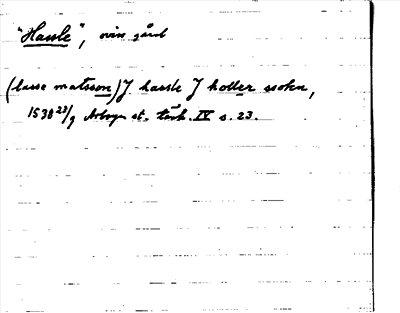 "Hassle", min gård
(lasse matsson) J hassle J holler ssokn,
1538 23/9 Arboga st. tänk. IV s. 23.